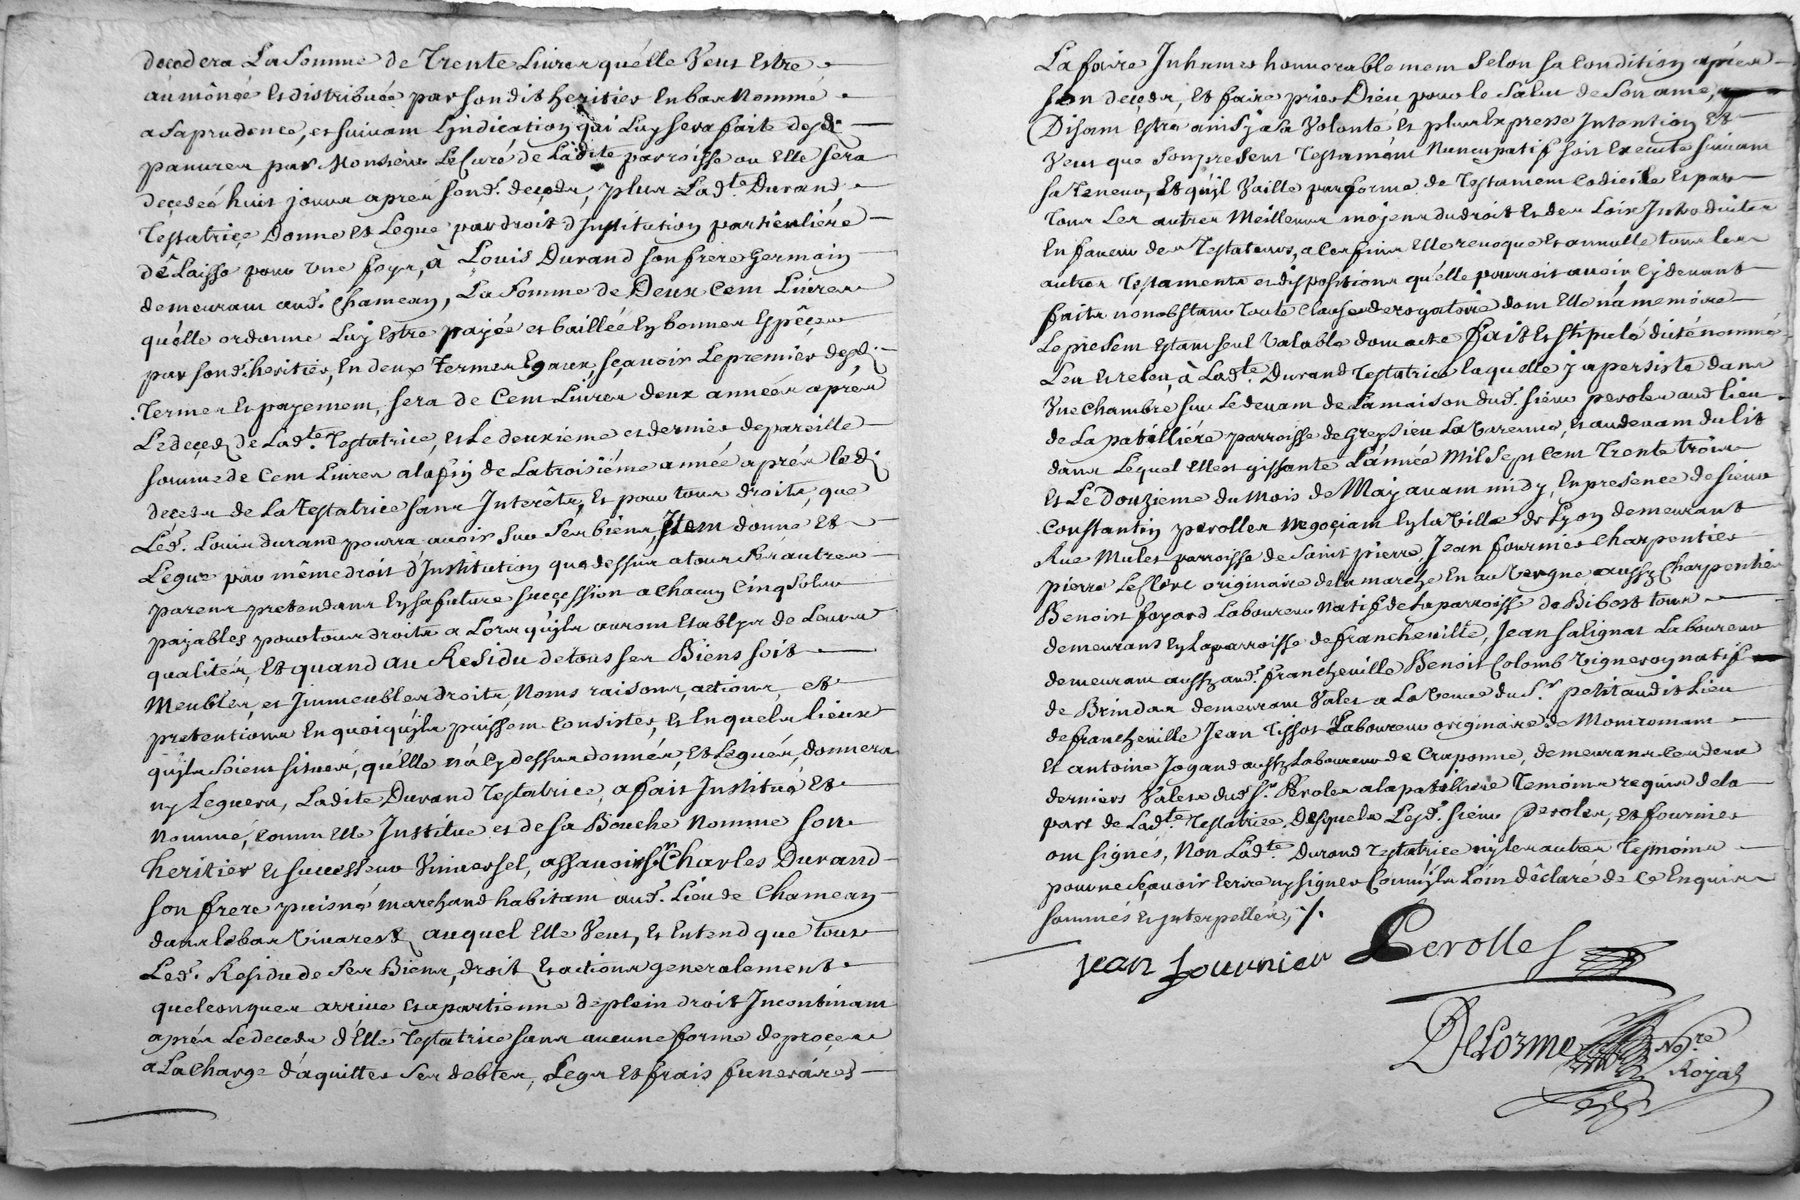 decedera La somme de Trente Livres qu'elle Veut Estre
aumônée et distribuée par sondit heritier En bas Nommé
a sa prudence, et suivant L'indication qui Luy sera faite desd.
pauures par Monsieur Le Curé de Ladite parroisse ou Elle sera
decedeé huit jours apres sond. deçeds, plus Lad.te Durand
Testatriçe Donne et Legue par droit d'Institution particuliére
délaisse pour Une foys, à Louis Durand son frere germain
demeurant aud. Chameau, La somme de Deux Cent Livres
qu'elle ordonne Luy Estre payée et baillée En bonnes Espêçes
par sond. heritier, En deux Termes Egaux, sçavoir Le premier desd.
Termes et payement, sera de Cent Livres deux années aprés
Le deçeds de Lad.te Testatrice, et Le deuxieme et dernier de pareille
somme de Cent Livres a la fin de La troisiéme année aprés led.
deceds de La Testatrice sans Interêts, Et pour tous droits, que
Led. Louis durand pourra avoir sur Ses biens, Item donne Et
Legue par même droit d'Institution que dessus a tous Ses autres
parens pretendans En sa future succession a chacun Cinq Sols
payables pour tous droits a Lors qu'ils auront Etablys de Leurs
qualités, Et quand au Residu de tous ses Biens soit
Meubles, et Immeubles droits, Noms raisons, actions, et
pretentions En quoi qu'ils puissent Consister, et En quels lieux
qu'ils soient situés, qu'Elle n'a Cy dessus donnés, Et Legués, donnera
ny Leguera, Ladite Durand Testatrice, a fait Institué Et
Nommé, Comm Elle Institue et de sa Bouche Nomme son
heritier et successeur Universel, assavoir Sr. Charles Durand
son frere puisné marchand habitant aud. Lieu de Chameau
dans le bas Vivarest auquel Elle Veut, et Entend que tout
Led. Residu de Ses Biens, droit Et actions generalement
quelconques arrive Et apartienne de plein droit Incontinant
aprés Le deceds d'Elle Testatrice sans aucune forme de proçes
a La Charge d'aquitter Ses debtes, Legs Et frais funeraires
La faire Inhumer honnorablement Selon sa Condition aprés
son deçeds, Et faire prier Dieu pour le Salut de Son ame,
Disant Estre ainsy sa Volonté et plus Expresse Intention Et
Veut que Son present Testament Nuncupatif soit Executé suivant
sa Teneur, Et qu'il Vaille par forme de Testament Codicile et par
Tous Les autres Meilleurs moyens du droit Et des Loix Introduites
En faveur des Testateurs, a Ces fins Elle revoque Et annulle tous Les
autres Testaments et dispositions qu'elle pourroit avoir Cy devant
faits nonobstant toute Clause derogatoire dont Elle n'a memoire
Le present Estant seul Valable dont acte Fait et stipulé dicté nommé
Leu Et releu, à Lad.te Durand Testatrice laquelle y a persisté dans
Vne chambre sur Le devant de La maison dud. sieur perolles aud lieu
de La patelliére parroisse de Gresieu La Varenne, Et audevant du lit
dans Lequel Elle est gissante L'année Mil Sept Cent Trente trois
Et Le Douzieme du Mois de May avant midy, En presence de sieur
Constantin perolles Negoçiant En la Ville de Lyon demeurant
Rue Mulet parroisse de Saint pierre, Jean fournier Charpentier
pierre Leclerc originaire de la marche En auvergne aussy Charpentier
Benoist fayard Laboureur Natif de La parroisse de Bibost tous
demeurans En La parroisse de francheville, Jean salignat Laboureur
demeurant aussy aud. francheville Benoist Colomb Vigneron natif
de Brindas demeurant Valet a La Veuve du S.r petit audit Lieu
de francheville Jean Tissot Laboureur originaire de Montromant
Et antoine Jogand aussy Laboureur de Craponne, demeurans Ces deux
derniers Valets dud. S.r Perolles a la patelliere Temoins requis de la
part de Lad.te Testatrice. Desquels Lesd. sieur Perolles, Et fournier
ont signés, Non Lad.te Durand Testatrice ny les autres Temoins
pour ne sçavoir Ecrire ny signer Comm'ils L'ont déclaré de Ce Enquis
sommés Et Interpellés, ./.
jean fournier Perolles
Delorme No.re
Royal